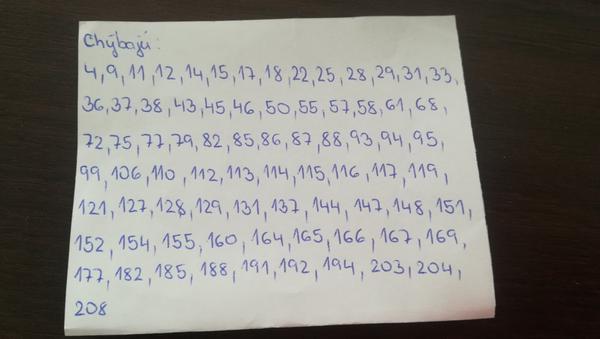 Chýbajú:
4,9,11,12,14,15,17,18,22,25,28,29,31,33,
36,37,38,43,45,46,50,55,57,58,61,68,
72,75,77,79,82,85,86,87,88,93,94,95,
99,106,110,112,113,114,115,116,117,119,
121,127,128,129,131,137,144,147,148,151,
152,154,155,160,164,165,166,167,169,
177,182,185,188,191,192,194,203,204,
208